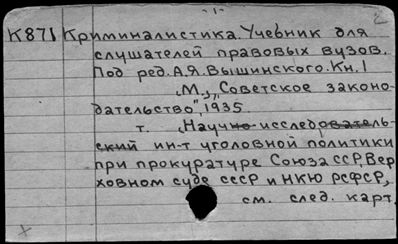 -1-
К871 Криминалистика. Учебник для
слушателей правовых вузов.
Под ред. А.Я. Вышинского. Кн. 1
„М.", „Советское законо-
дательство", 1935
т. „Научно-исследователь-
ский ин-т уголовной политики
при прокуратуре Союза ССР, Вер
ховном суде СССР и НКЮ РСФСР,
см. след. карт.